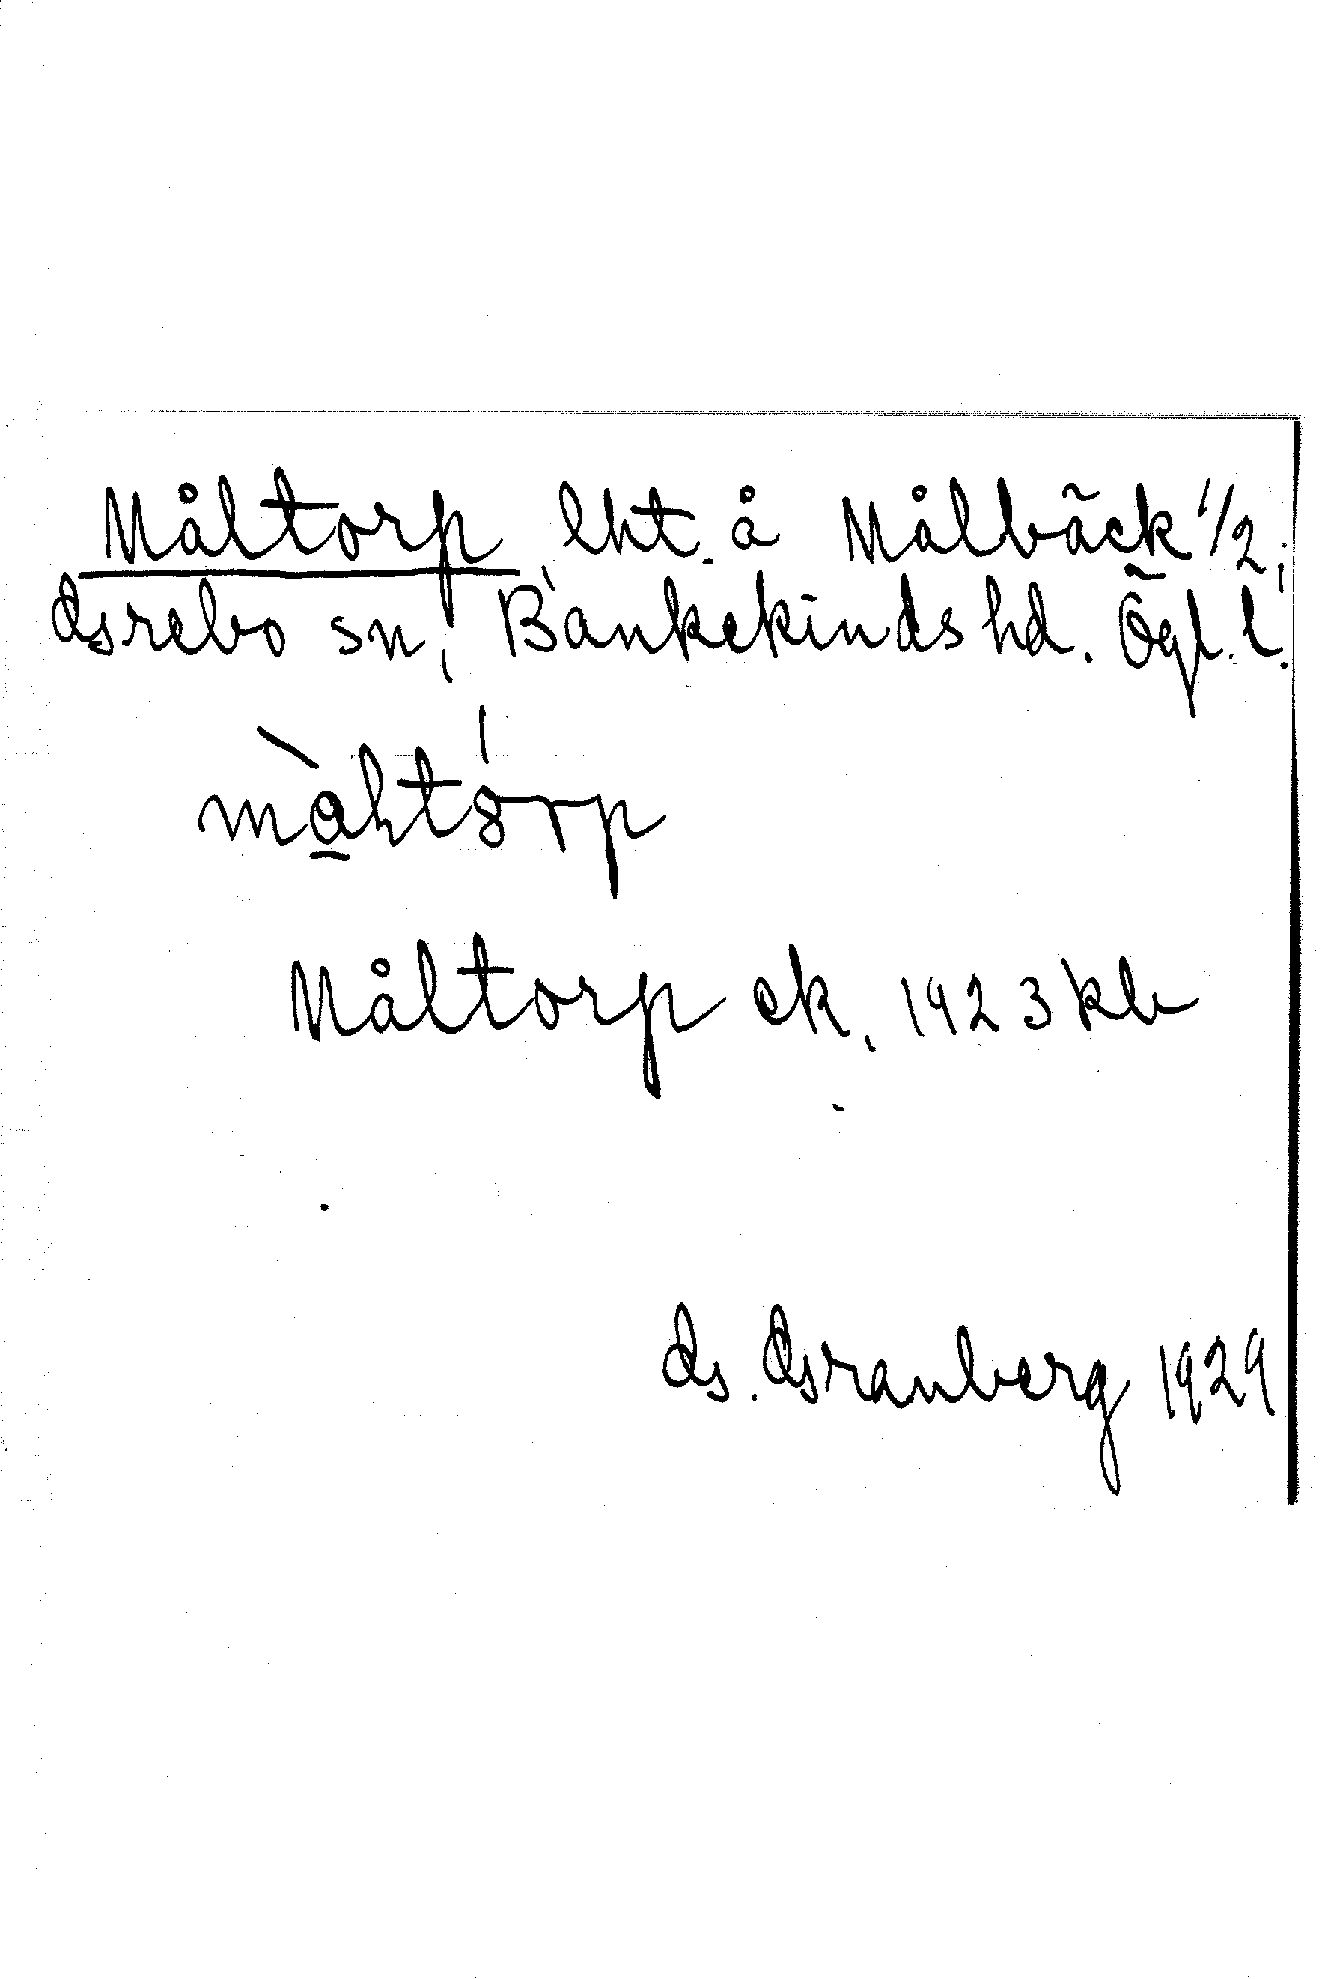 Måltorp lht. å Målbäck 1/2,
Grebo sn, Bankekinds hd. Ögl. l.
màhtórp
Måltorp ek. 1923 kb
G. Granberg 1929